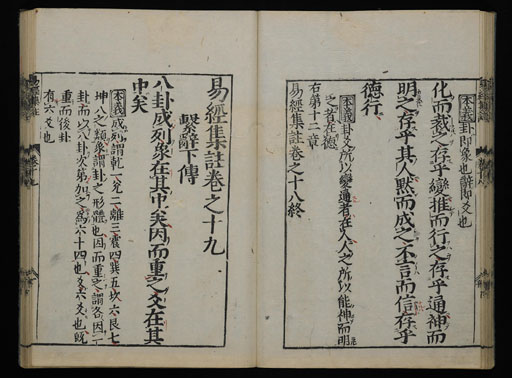 本義卦即象也辭即爻也
化而裁之存乎變推而行之存乎通神而
明之存乎其人默而成之不言而信存乎
德行
本義卦爻所以變通者在人人之所以能神而明
之者在德
右第十二章
易經集註卷之十八終
易經集註卷之十九
繫辭下傳
八卦成列象在其中矣因而重之爻在其
中矣
本義成列謂乾一兌二離三震四巽五坎六艮七
坤八之類象謂卦之形體也因而重之謂各因一
卦而以八卦次第加之爲六十四也爻六爻也既
重而後卦
有六爻也